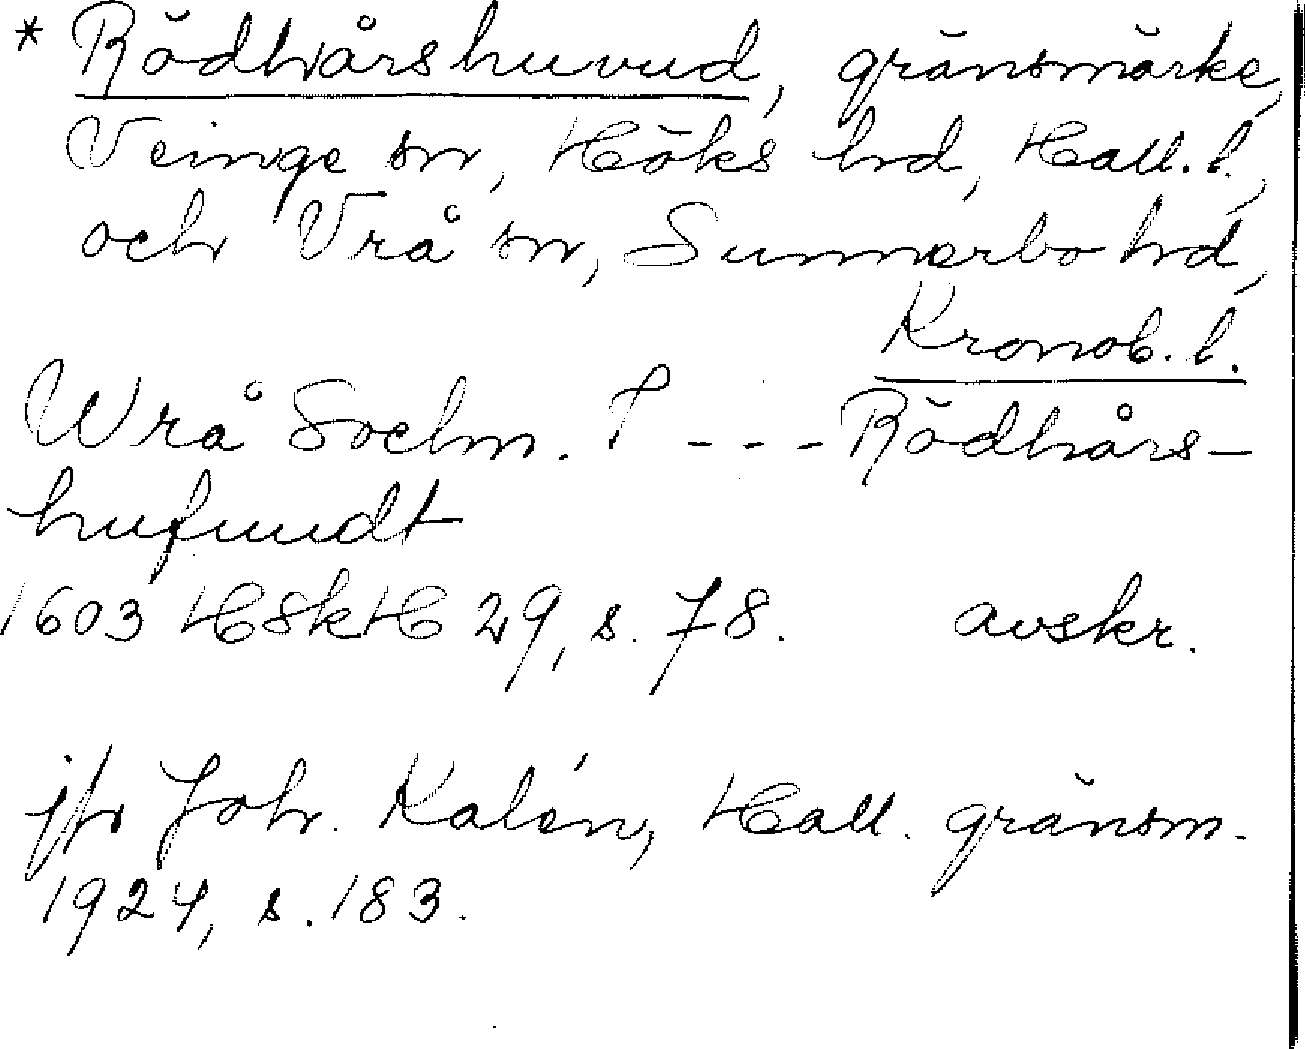 * Rödhårshuvud, gränsmärke,
Veinge sn, Höks hd, Hall. l.,
och Vrå sn, Sunnerbo hd,
Kronob. l.
Wrå Sochn. ? - - - Rödhårs-
hufuudt
1603 HSkH 29, s. 78. avskr.
jfr Joh. Kalén, Hall. gränsm.
1924, s. 183.